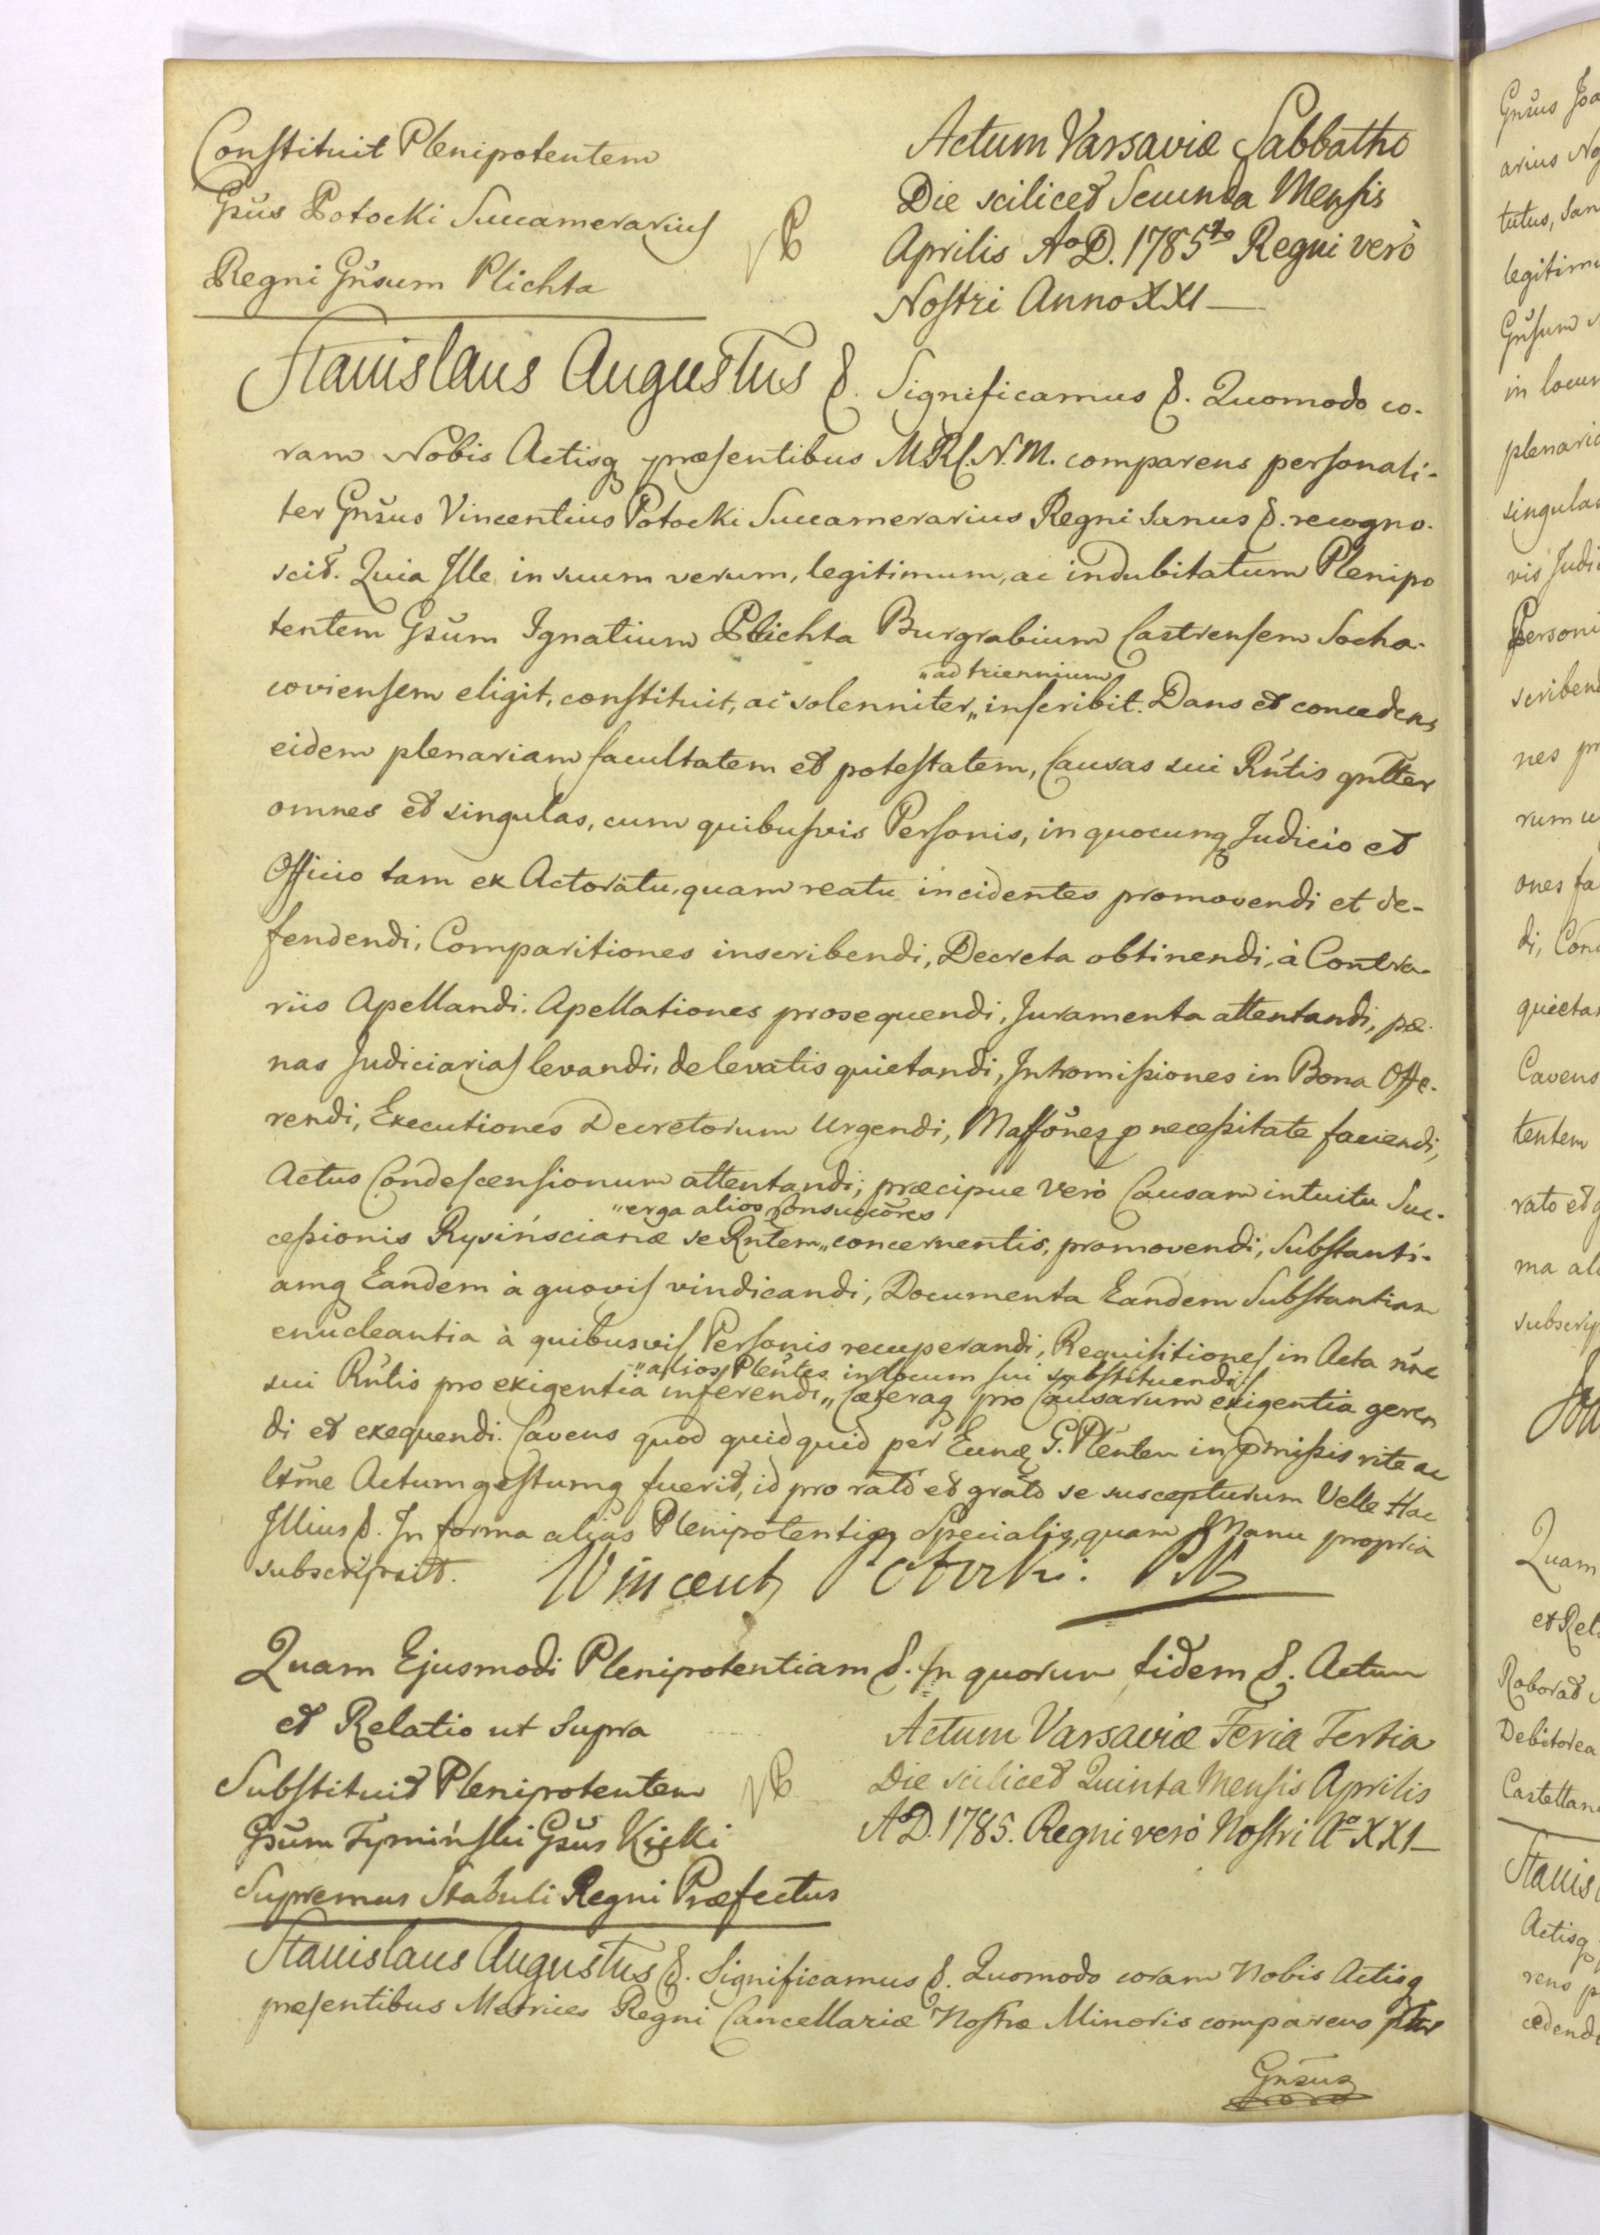 Constituit Plenipotentem
Gsus Potocki Succamerarius
Regni Gnsum Plichta
Actum Varsaviæ Sabbatho
Die scilicet Secunda Mensis
Aprilis Ao D. 1785to Regni verò
Nostri Anno XXI
Stanislaus Augustus &. Significamus &. Quomodo co-
ram Nobis Actisq præsentibus M.R.C.N.M. comparens personali-
ter Gnsus Vincentius Potocki Succamerarius Regni Sanus &. recogno-
scit. Quia Ille in suum verum, legitimum, ac indubitatum Plenipo
tentem Gsum Ignatium Plichta Burgrabium Castrensem Socha-
"ad triennium
coviensem eligit, constituit, ac solenniter„ inscribit. Dans et concedens
eidem plenariam facultatem et potestatem, Causas sui Rntis gnlter
omnes et singulas, cum quibusvis Personis, in quocunq Judicio et
Officio tam ex Actoratu, quam reatu incidentes promovendi et de-
fendendi, Comparitiones inscribendi, Decreta obtinendi, à Contra-
riis Apellandi. Apellationes prosequendi, Juramenta attentandi, pæ-
nas Judiciarias levandi, de levatis quietandi, Intromissiones in Bona Offe-
rendi, Executiones Decretorum Urgendi, Maffones p necessitate faciendi,
Actus Condescensionum attentandi; præcipue verò Causam intuitu Suc-
"erga alios Consuccores
cessionis Rysińscianæ se Rntem„ concernentis, promovendi, Substanti-
amq Eandem à quovis vindicandi, Documenta Eandem Substantiam
enucleantia à quibusvis Personis recuperandi, Requisitiones in Acta nne
"alios Plentes in locum sui substituendi
sui Rntis pro exigentia inferendi„ Cæteraq pro Causarum exigentia geren
di et exequendi. Cavens quod quidquid per Eunq G. Plenten in pmissis rite ac
ltme Actum gestumq fuerit, id pro rato et grato se suscepturum Velle Hac
Illius &. In forma alias Plenipotentiæ Specialis, quam Manu propria
subscripsit. Wincenty Potocki. PK
Quam Ejusmodi Plenipotentiam &. In quorum fidem &. Actum
et Relatio ut Supra
Actum Varsaviæ Feria Tertia
Die scilicet Quinta Mensis Aprilis
A D. 1785. Regni verò Nostri Ao XXI
Substituit Plenipotentem
Gsum Tymiński Gsus Kicki
Supremus Stabuli Regni Præfectus
Stanislaus Augustus &. Significamus &. Quomodo coram Nobis Actisq
præsentibus Metrices Regni Cancellariæ Nostræ Minoris comparens plter
Gnsus